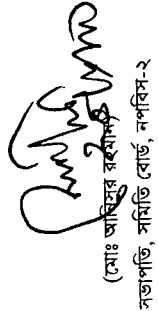 (মোঃ আনিসুর রহমান)
সভাপতি, সমিতি বোর্ড, নপবিস-২